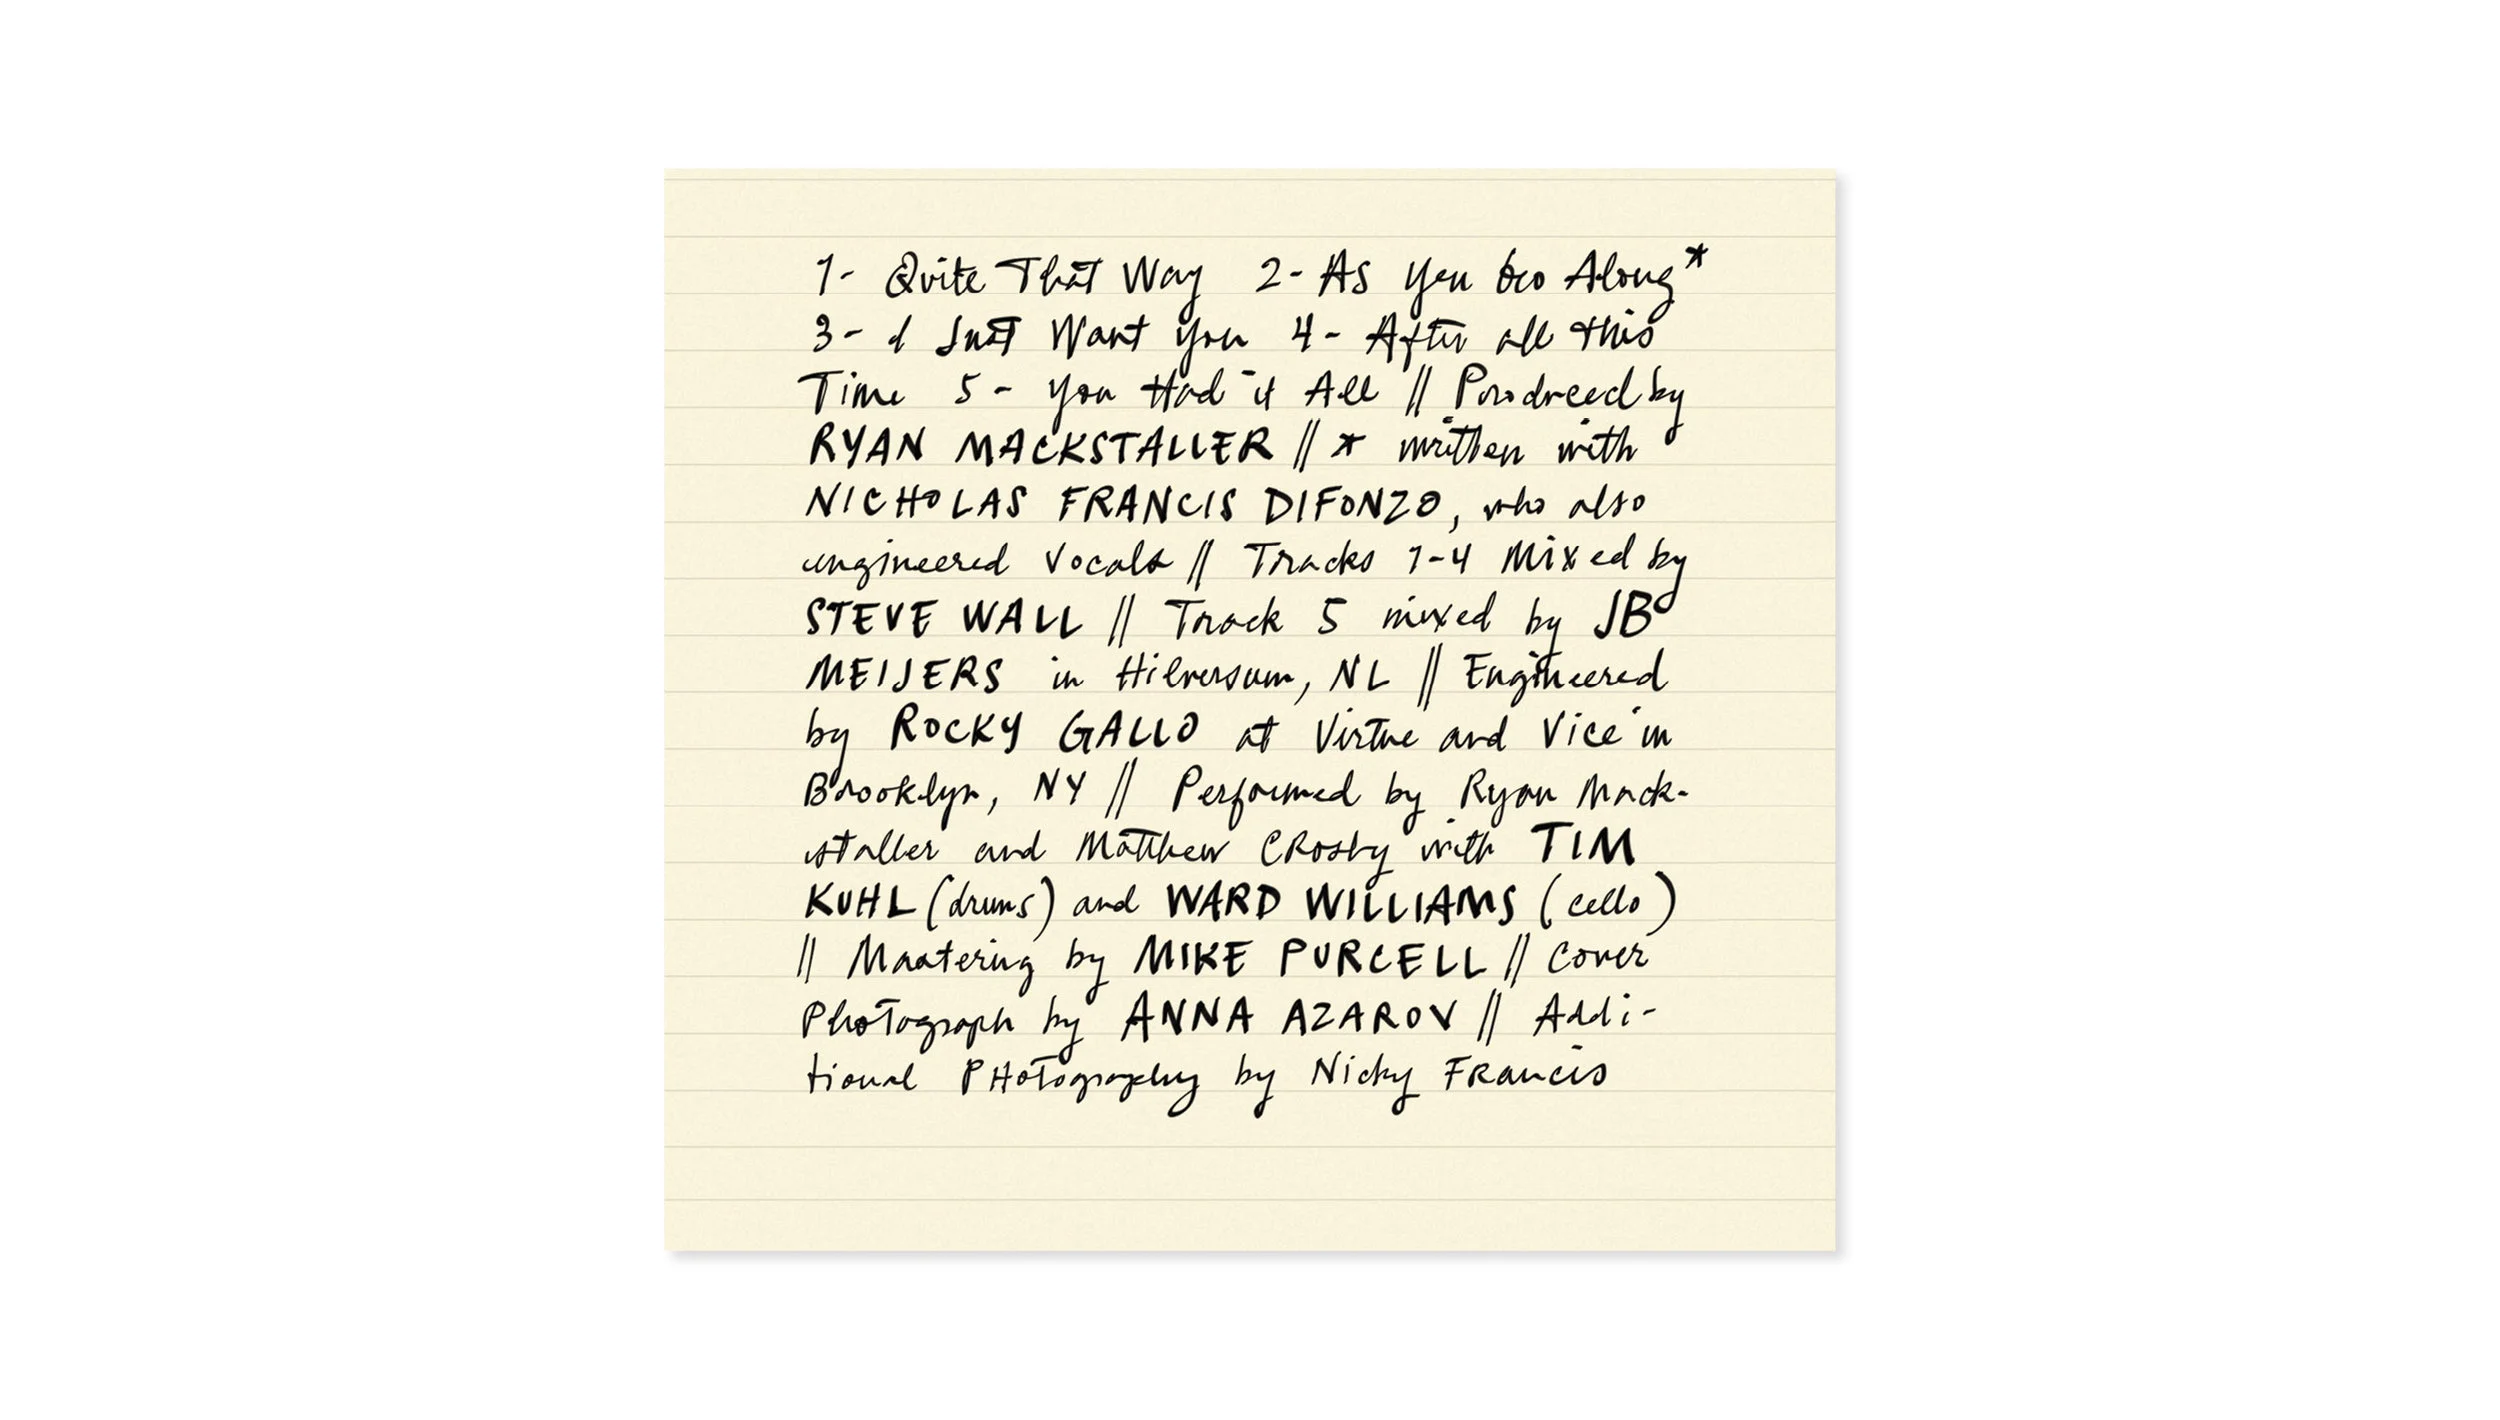 1- Quite That Way 2- As You Go Along*
3- I Just Want You 4- After all this
Time 5- You Had it All // Produced by
RYAN MACKSTALLER // * written with
NICHOLAS FRANCIS DIFONZO, who also
engineered vocals // Tracks 1-4 Mixed by
STEVE WALL // Track 5 mixed by JB
MEIJERS in Hilversum, NL // Engineered
by ROCKY GALLO at Virtue and Vice in
Brooklyn, NY // Performed by Ryan Mack-
staller and Matthew Crosby with TIM
KUHL (drums) and WARD WILLIAMS (cello)
// Mastering by MIKE PURCELL // Cover
Photograph by ANNA AZAROV // Addi-
tional Photography by Nicky Francis